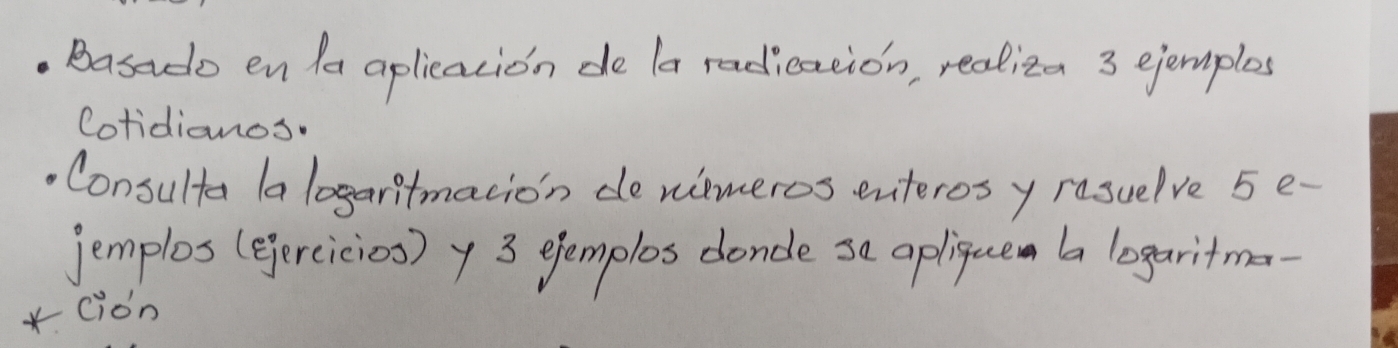 • Basado en la aplicación de la radicación, realiza 3 ejemplos
Cotidianos.
• Consulta la logaritmación de números enteros y resuelve 5 e-
jemplos (ejercicios) y 3 ejemplos donde se apliquen la logaritma-
* ción